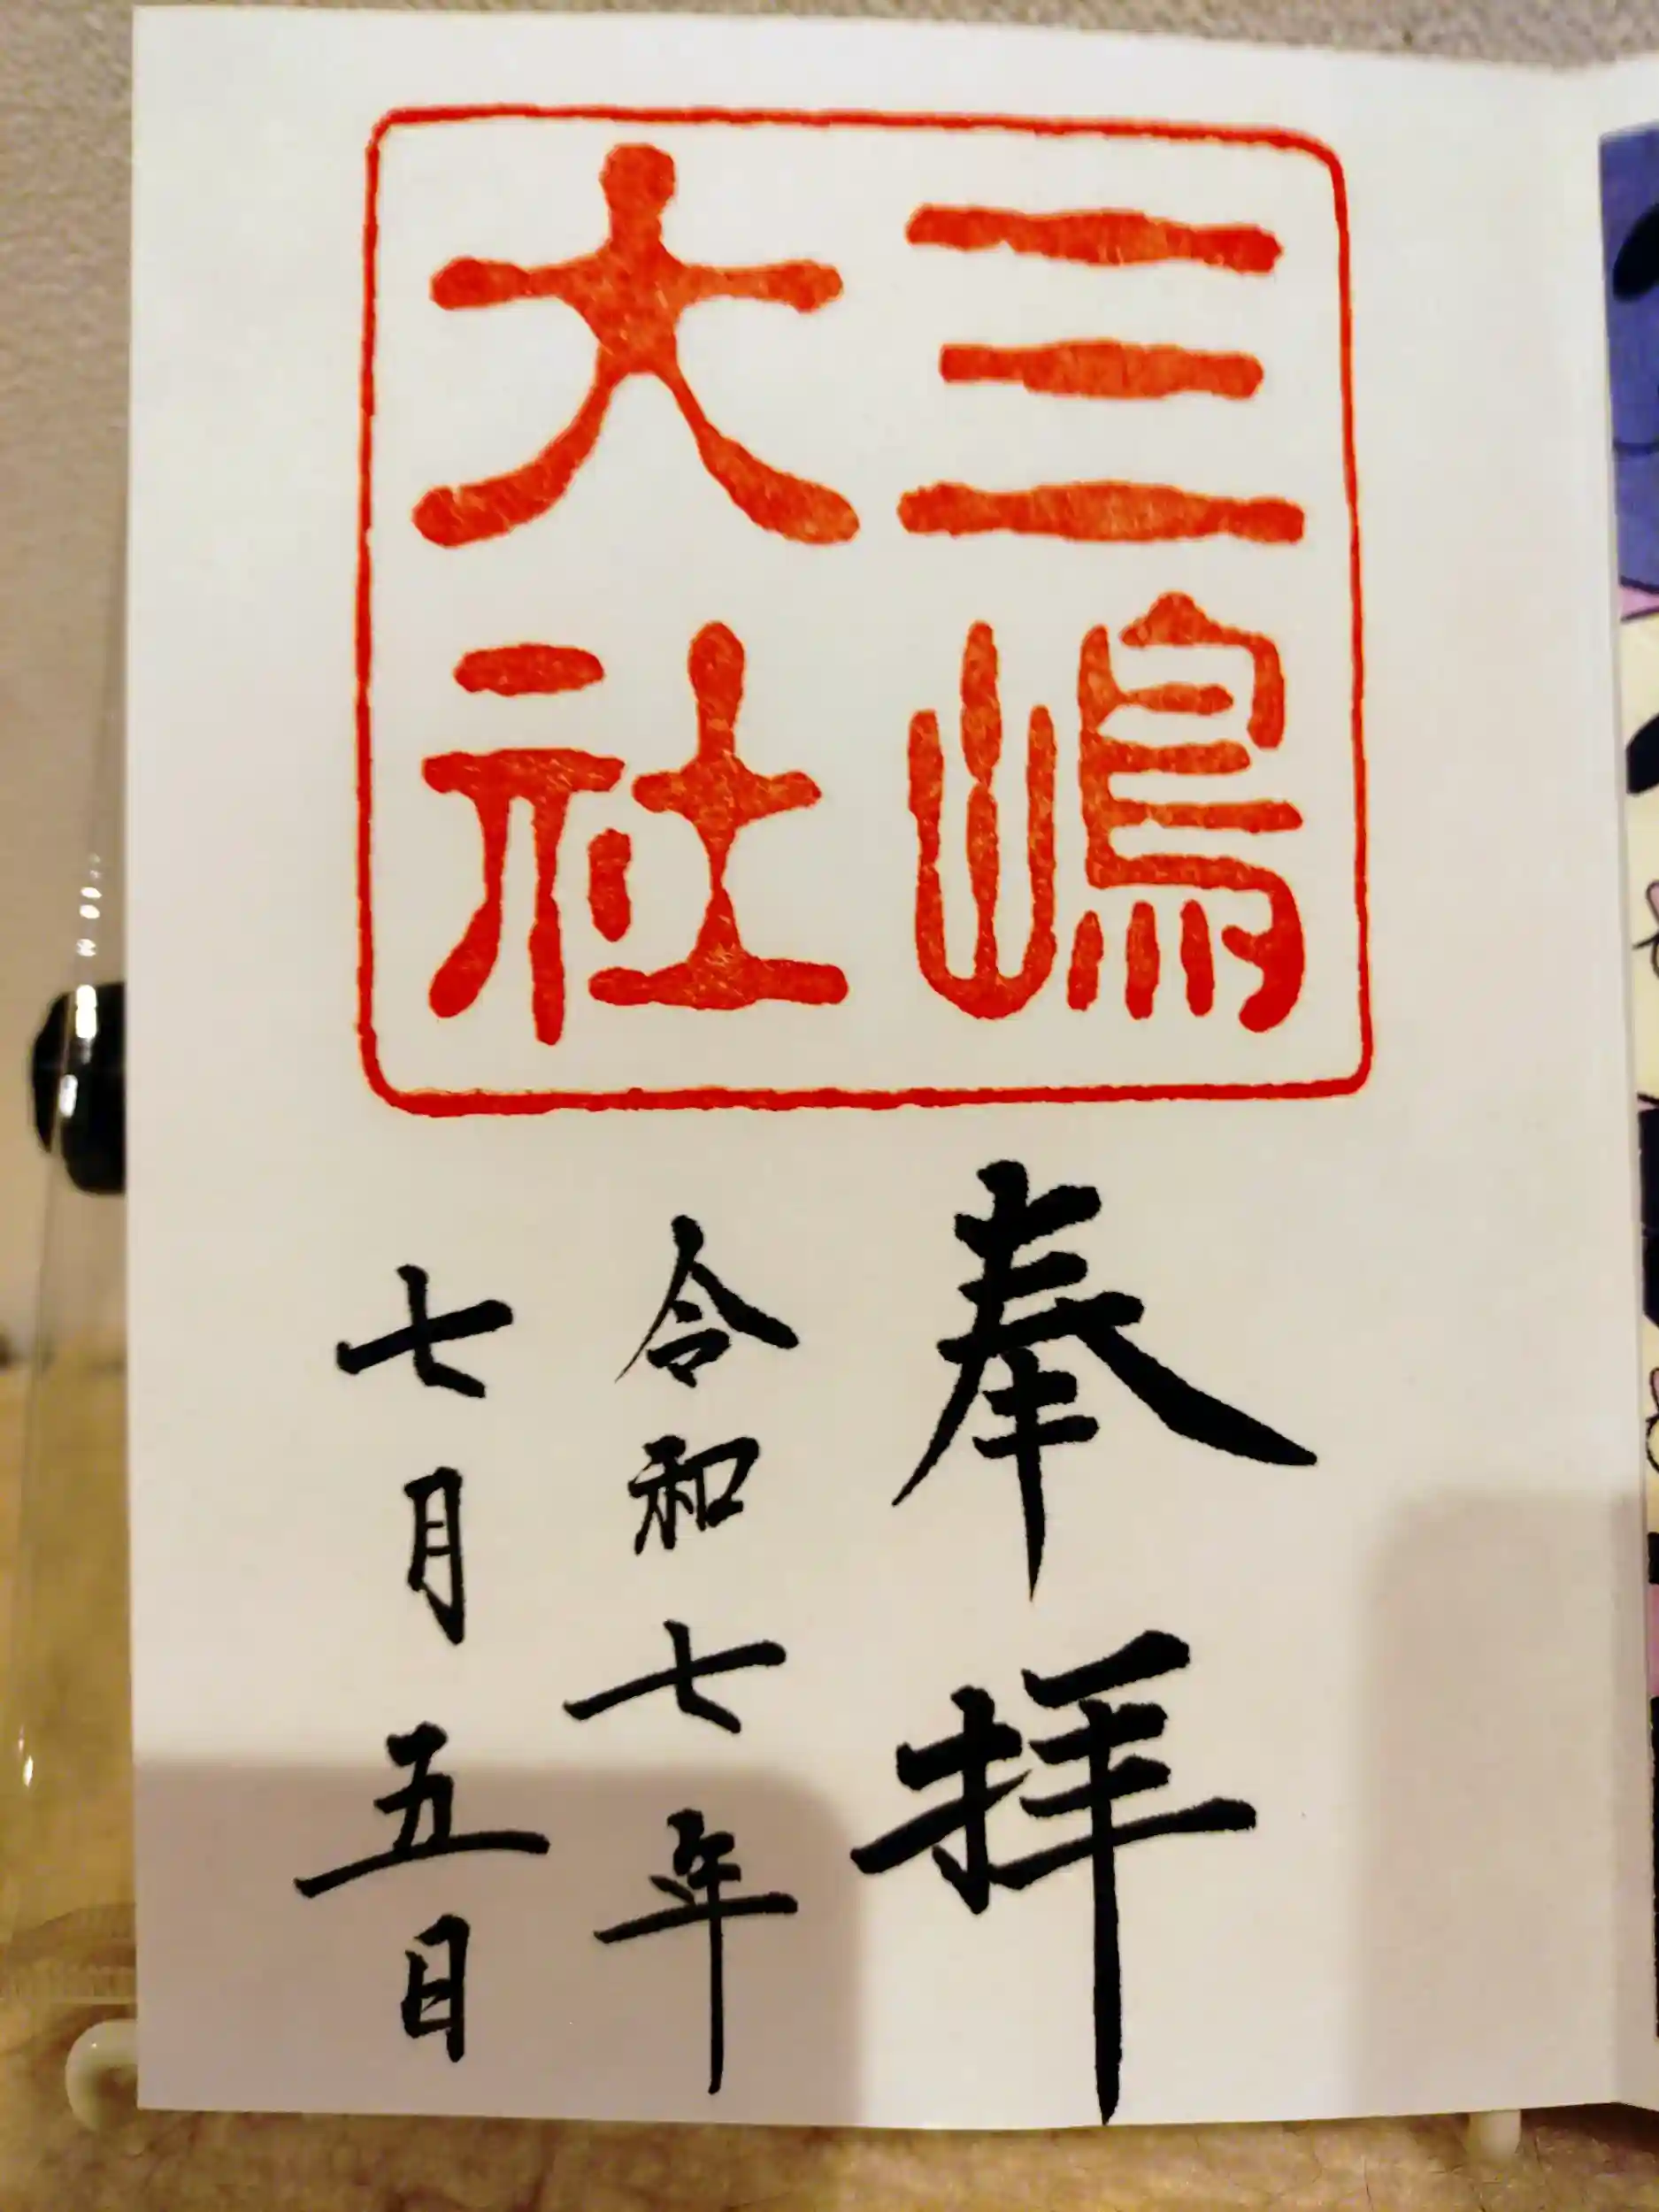 三嶋
大社
奉拝
令和七年
七月五日